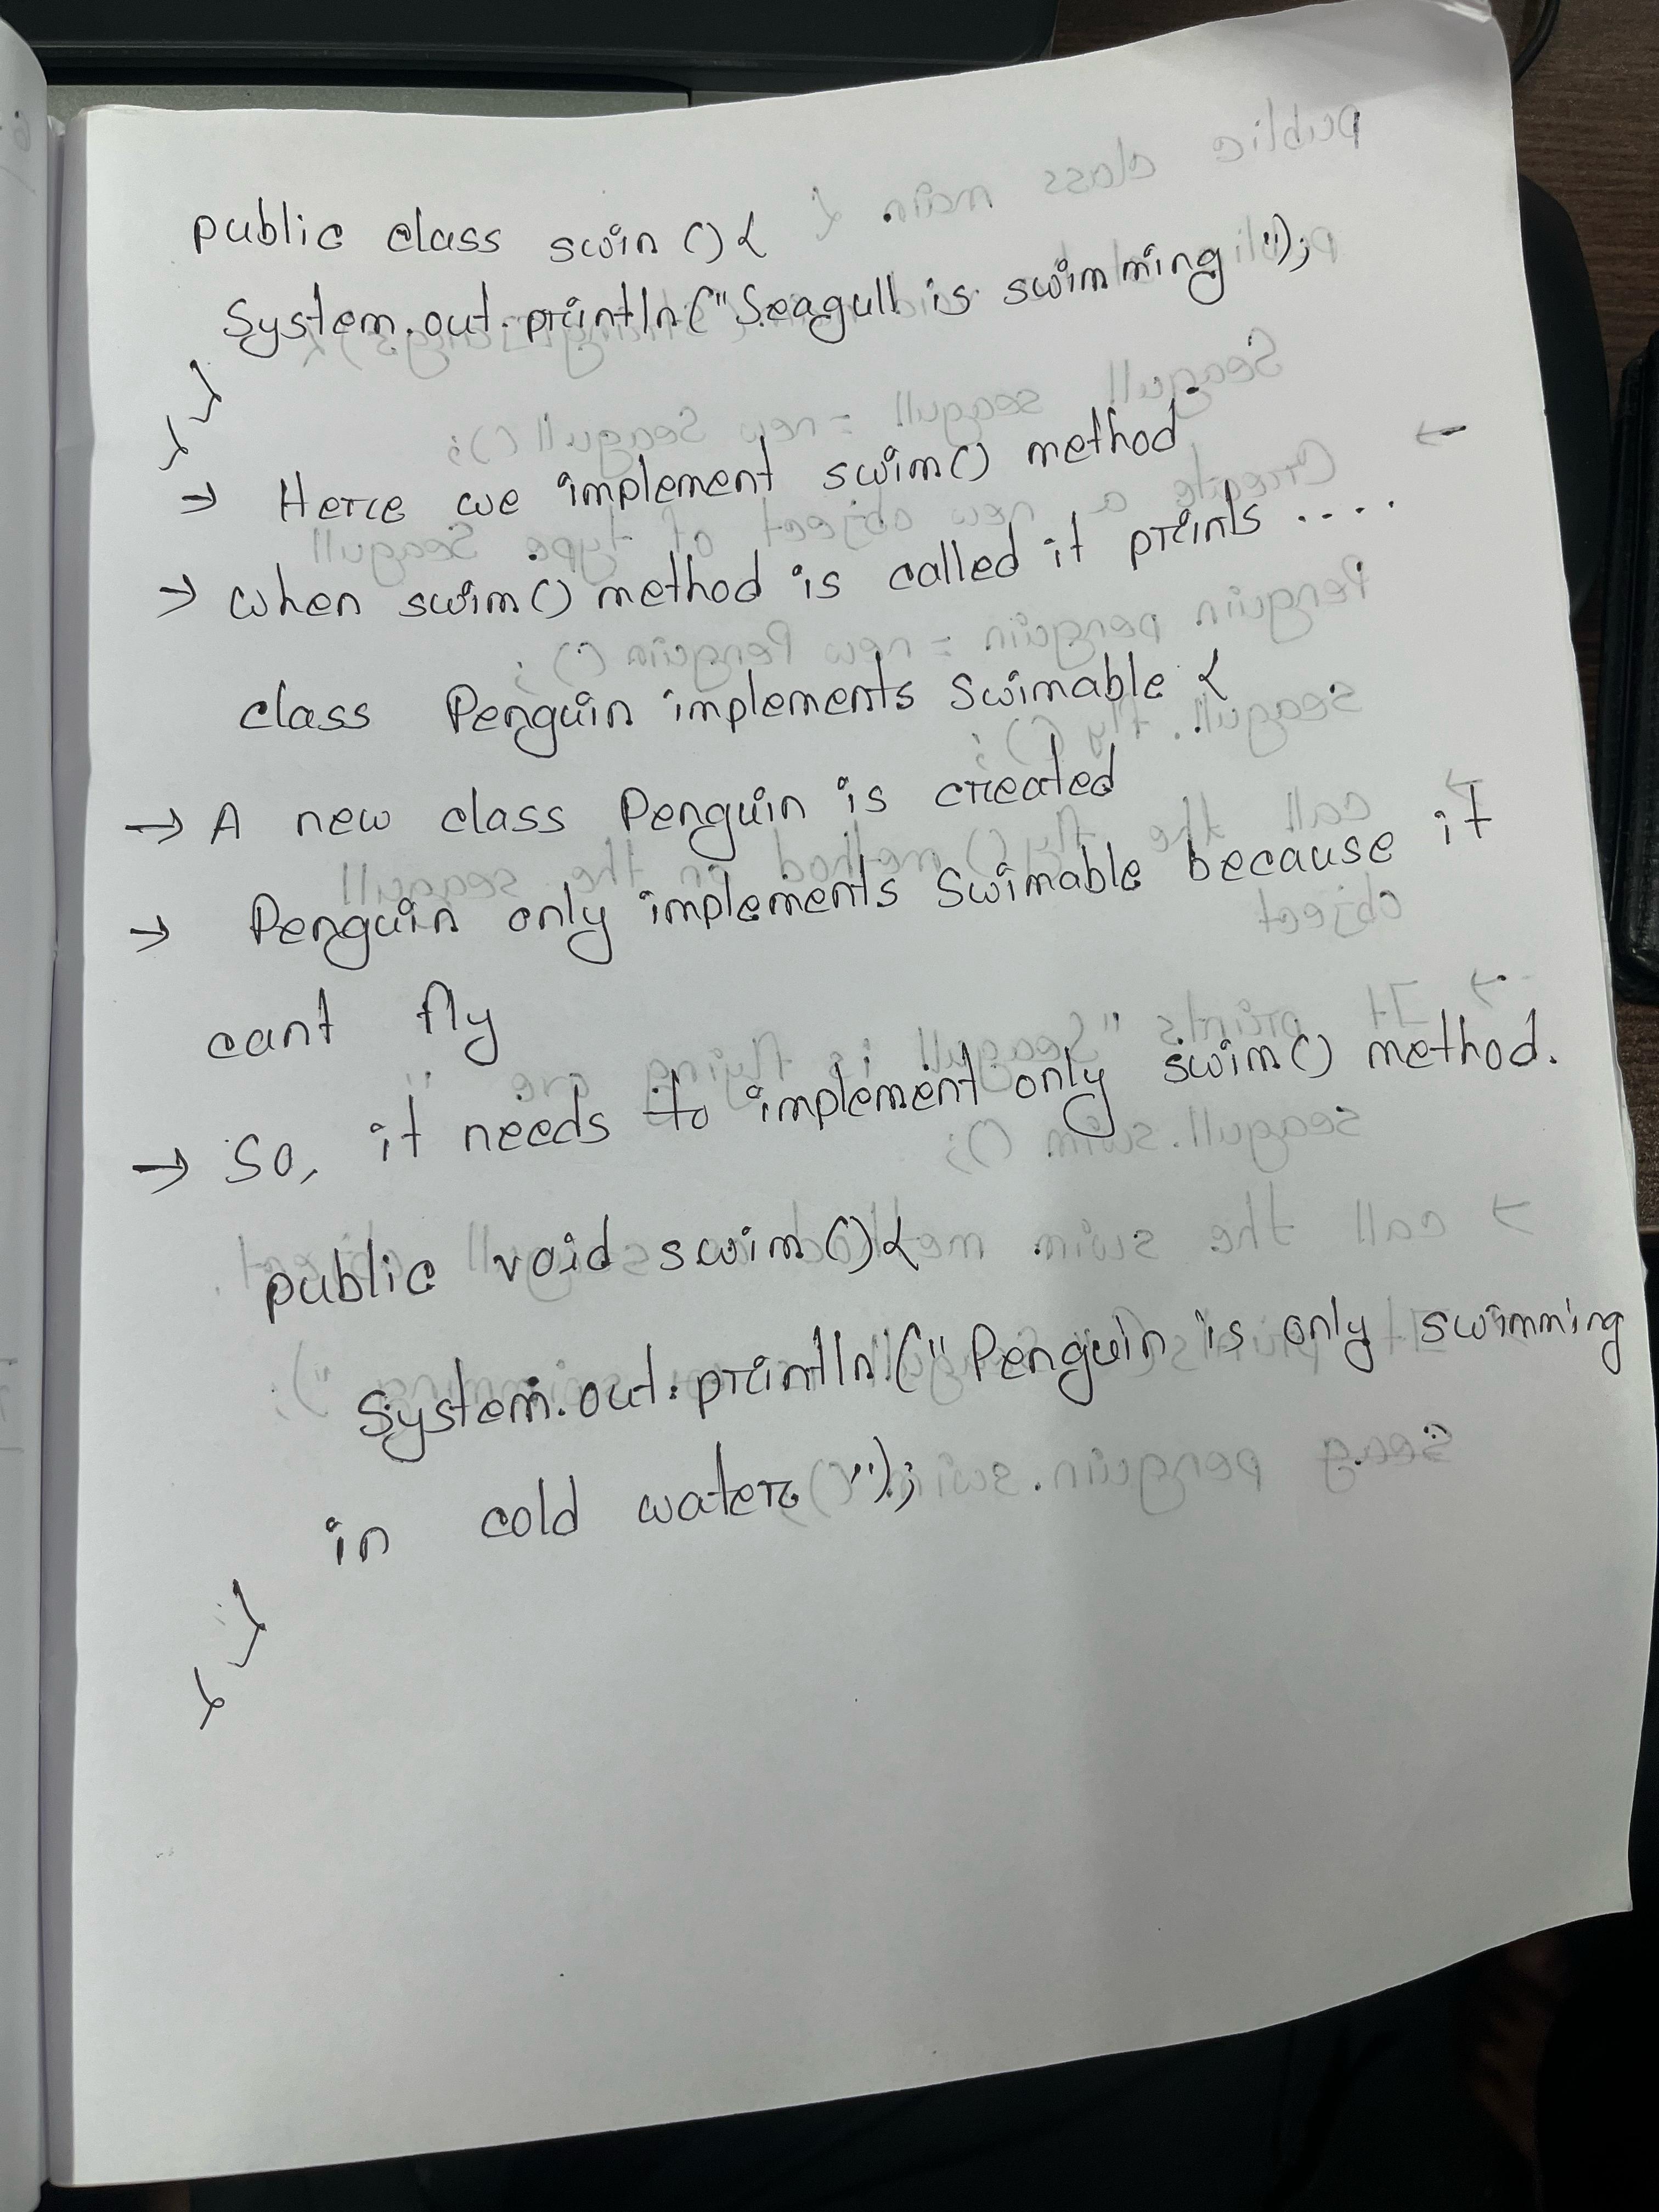 public class swim () {
System.out.println("Seagull is swimming");
}
}
→ Here we implement swim() method
→ when swim() method is called it prints ....
class Penguin implements Swimable {
→ A new class Penguin is created
→ Penguin only implements Swimable because it
cant fly
→ So, it needs to implement only swim() method.
public void swim() {
System.out.println("Penguin is only swimming
in cold water");
}
}